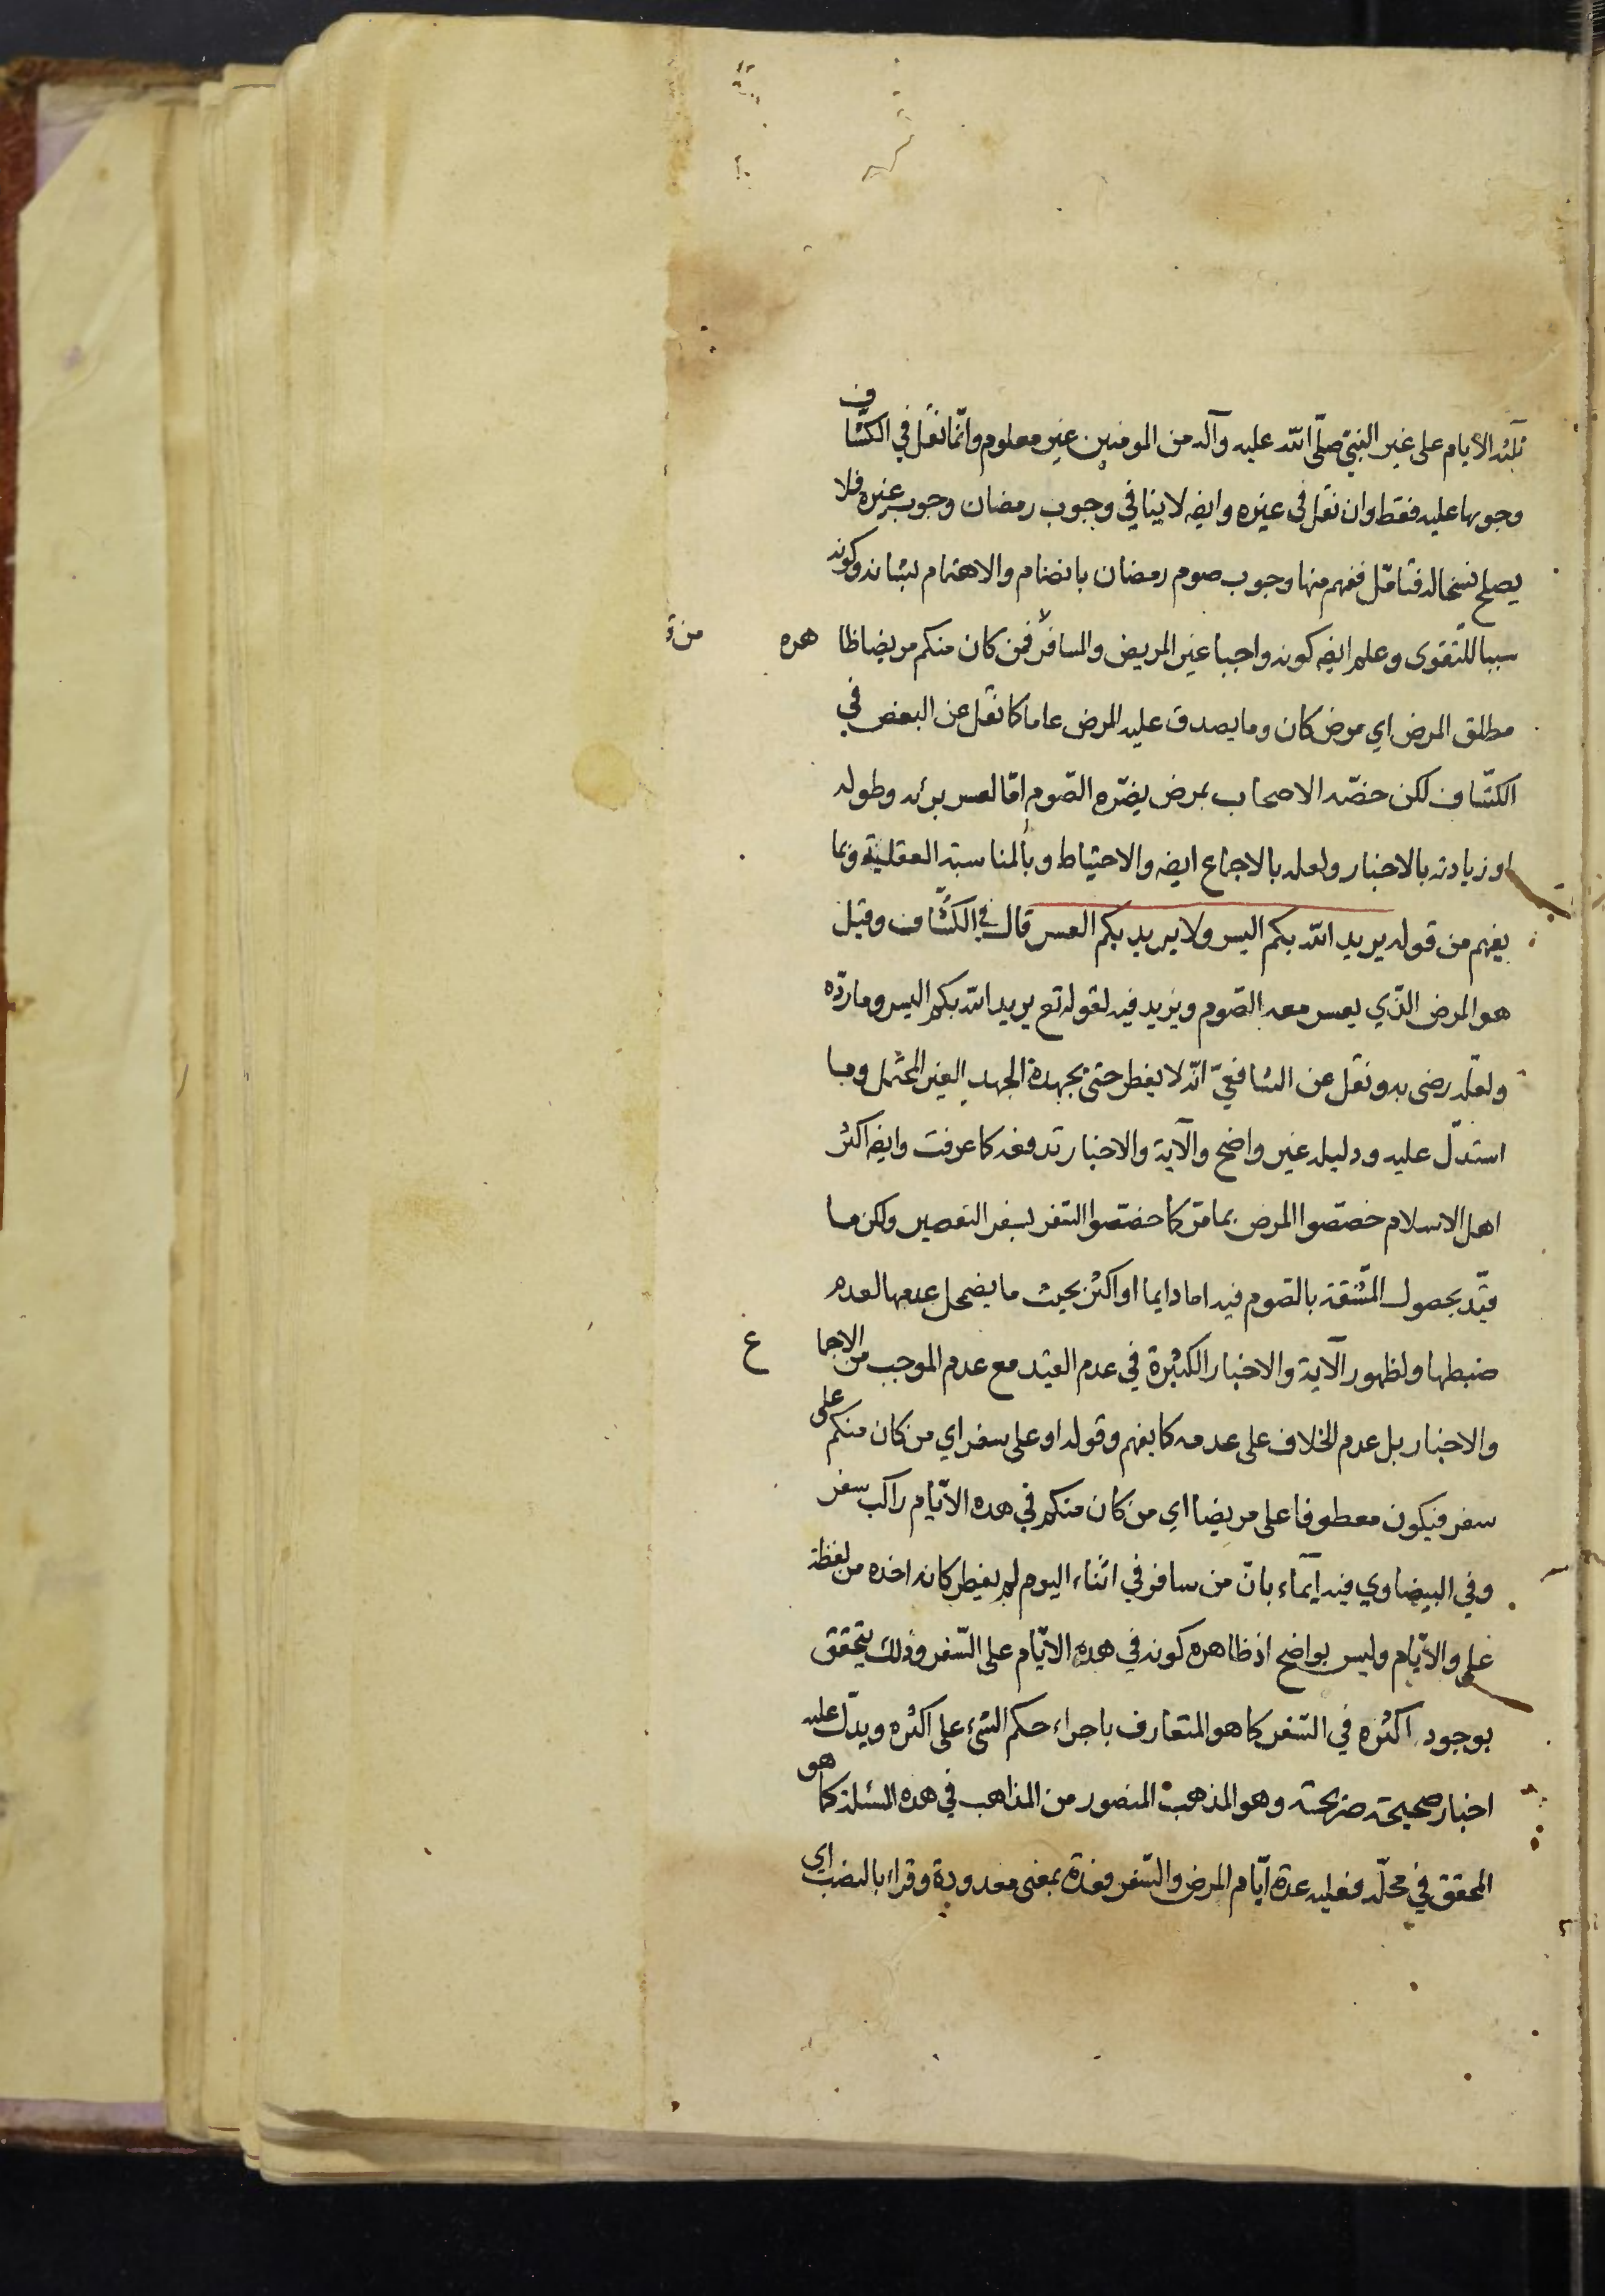 ثلثه الأيام على غير النبيّ صلّى الله عليه وآله من المومنين غير معلوم وانّما نقل في الكشّاف
وجوبها عليه فقط وان نقل في غيره وايضه لا ينافي وجوب رمضان وجوب غيره فلا
يصلح نسخا له فتأمّل ففهم منها وجوب صوم رمضان بانضمام والاهتمام بشانه وكونه
سببا للتقوى وعلم ايضه كونه واجبا غير المريض والمسافر لا فمن كان منكم مريضا ظاهره
مطلق المرض اي مرض كان وما يصدق عليه المرض عاما كما نقل عن البعض في
الكشّاف لكن خصّه الاصحاب بمرض يضرّه الصّوم امّا لعسر برئه وطوله
او زيادته بالاخبار ولعله بالاجماع ايضه والاحتياط وبالمناسبة العقليّة وبما
يفهم من قوله يريد الله بكم اليسر ولا يريد بكم العسر قال في الكشّاف وقيل
هو المرض الذّي يعسر معه الصّوم ويزيد فيه لقوله تع يريد الله بكم اليسر وما ردّه
ولعلّه رضى به ونقل عن الشافعيّ انّه لا يفطر حتىّ يجهده الجهد الغير المحتمل وما
استدلّ عليه ودليله غير واضح والآية والاخبار تدفعه كما عرفت وايضه اكثر
اهل الاسلام خصّصوا المرض بما مرّ كما خصّصوا السّفر بسفر التقصير ولكن ما
قيّد بحصول المشّقة بالصّوم فيه اما دايما او اكثر بحيث ما يضمحل عدمها لعدم
ضبطها ولظهور الآية والاخبار الكثيرة في عدم القيد مع عدم الموجب من الاجماع
والاخبار بل عدم الخلاف على عدمه كما يفهم وقوله او على سفر اي من كان منكم على
سفر فيكون معطوفا على مريضا اي من كان منكم في هذه الايّام راكب سفر
وفي البيضاوي فيه ايماء بانّ من سافر في اثناء اليوم لم يفطر كانه اخذه من لفظة
على والايّام وليس بواضح اذ ظاهره كونه في هذه الايّام على السّفر وذلك يتحقق
بوجود اكثره في السّفر كما هو المتعارف باجراء حكم الشئ على اكثره ويدلّ عليه
اخبار صحيحة صريحة وهو المذهب المنصور من المذاهب في هذه المسئلة كما هو
المحقق في محلّه فعليه عدة ايّام المرض والسّفر فعدة بمعنى معدودة وقراء بالنصب اي